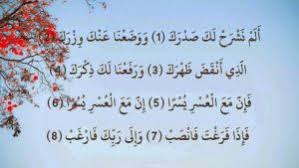 أَلَمْ نَشْرَحْ لَكَ صَدْرَكَ (1) وَوَضَعْنَا عَنْكَ وِزْرَكَ (2)
الَّذِي أَنْقَضَ ظَهْرَكَ (3) وَرَفَعْنَا لَكَ ذِكْرَكَ (4)
فَإِنَّ مَعَ الْعُسْرِ يُسْرًا (5) إِنَّ مَعَ الْعُسْرِ يُسْرًا (6)
فَإِذَا فَرَغْتَ فَانْصَبْ (7) وَإِلَى رَبِّكَ فَارْغَبْ (8)